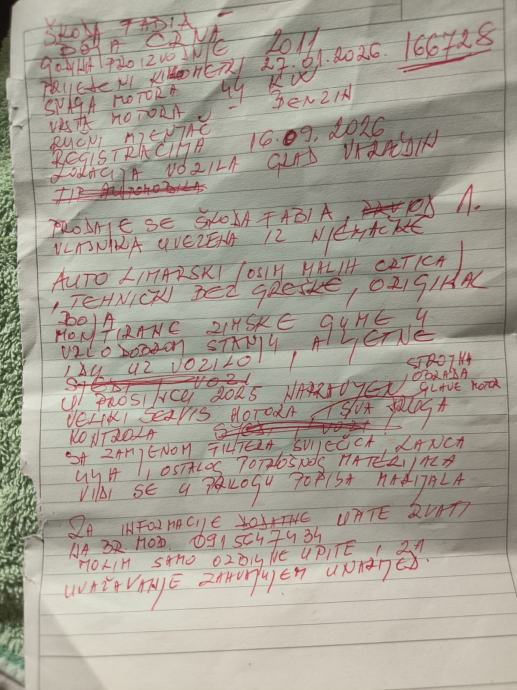 ŠKODA FABIA
BOJA CRNA
GODINA PROIZVODNJE 2011
PRIJEĐENI KILOMETRI 27.01.2026. 166728
SNAGA MOTORA 44 KW
VRSTA MOTORA BENZIN
RUČNI MJENJAČ
REGISTRACIJA 16.09.2026
LOKACIJA VOZILA GRAD VARAŽDIN
TIP AUTOMOBILA
PRODAJE SE ŠKODA FABIA, OD 1.
VLASNIKA UVEZENA IZ NJEMAČKE
AUTO LIMARSKI (OSIM MALIH CRTICA)
, TEHNIČKI BEZ GREŠKE, ORIGINAL
BOJA
MONTIRANE ZIMSKE GUME U
VRLO DOBROM STANJU, A LJETNE
IDU UZ VOZILO,
U PROSINCU 2025 NAPRAVLJEN STROJNA OBRADA GLAVE MOTOR
VELIKI SERVIS MOTORA I SVA DRUGA
KONTROLA
SA ZAMJENOM FILTERA SVIJEĆICA, LANCA
ULJA, OSTALOG POTROŠNOG MATERIJALA
VIDI SE U PRILOGU POPISA MARIJALA
ZA INFORMACIJE DODATNE UPITE ZVATI
NA MOB. 091 5647434
MOLIM SAMO OZBILJNE UPITE, ZA
UVAŽAVANJE ZAHVALJUJEM UNAPRJED.